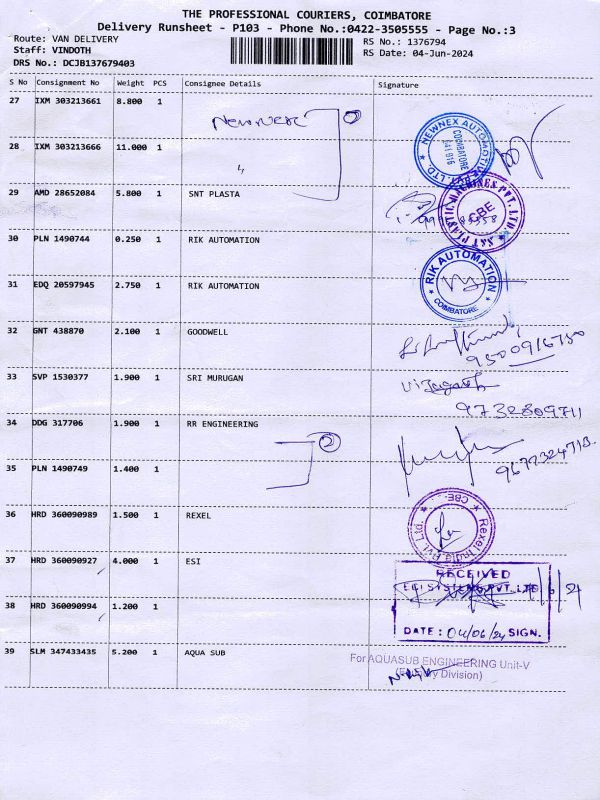 THE PROFESSIONAL COURIERS, COIMBATORE
Delivery Runsheet - P103 - Phone No.:0422-3505555 - Page No.:3
Route: VAN DELIVERY
Staff: VINDOTH
DRS No.: DCJB137679403
RS No.: 1376794
RS Date: 04-Jun-2024
S No Consignment No Weight PCS Consignee Details Signature
27 IXM 303213661 8.800 1
NEWNEX AUTOMOTIVE
COIMBATORE
28 IXM 303213666 11.000 1
29 AMD 28652084 5.800 1 SNT PLASTA
S&T PLASTIC MACHINES PVT. LTD
CBE
30 PLN 1490744 0.250 1 RIK AUTOMATION
31 EDQ 20597945 2.750 1 RIK AUTOMATION
RIK AUTOMATION
COIMBATORE
32 GNT 438870 2.100 1 GOODWELL
9500916750
33 SVP 1530377 1.900 1 SRI MURUGAN
9732809711
34 DDG 317706 1.900 1 RR ENGINEERING
2
35 PLN 1490749 1.400 1
36 HRD 360090989 1.500 1 REXEL
Rexel India Pvt. Ltd.
CBE
37 HRD 360090927 4.000 1 ESI
RECEIVED
38 HRD 360090994 1.200 1
DATE: 04/06/24 SIGN.
39 SLM 347433435 5.200 1 AQUA SUB
For AQUASUB ENGINEERING Unit-V
Division)